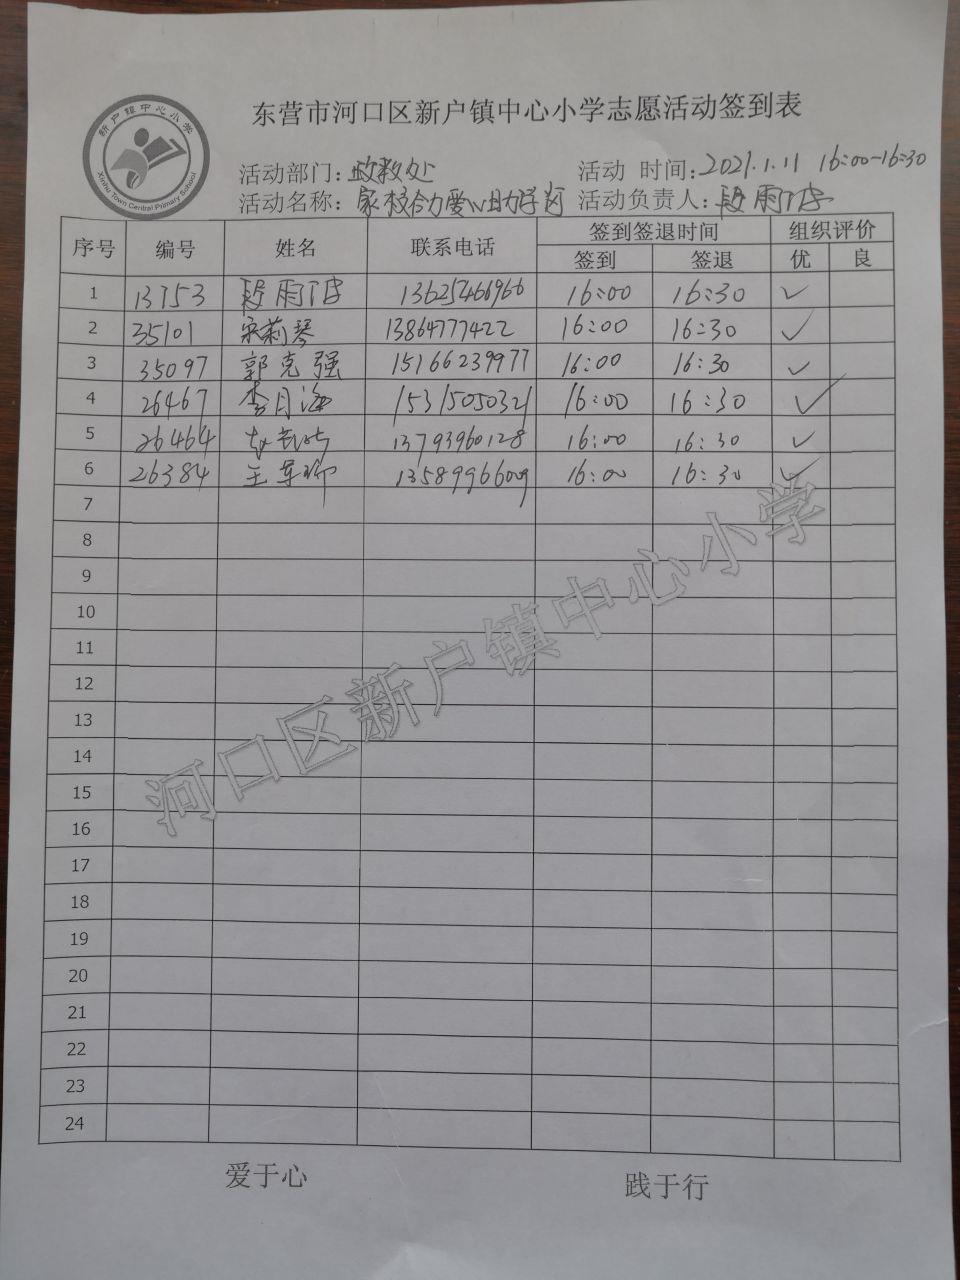 东营市河口区新户镇中心小学志愿活动签到表
新户镇中心小学
Xinhu Town Central Primary School
活动部门：政教处 活动 时间：2021.1.11 16:00-16:30
活动名称：家校合力爱心助学 活动负责人：段雨
序号 编号 姓名 联系电话 签到签退时间 组织评价
签到 签退 优 良
1 13753 段雨 13625466966 16:00 16:30 ✓
2 35101 宋莉琴 13864777422 16:00 16:30 ✓
3 35097 郭克强 15166239977 16:00 16:30 ✓
4 26467 李月海 15315050321 16:00 16:30 ✓
5 26464 13793960128 16:00 16:30 ✓
6 26384 王军 13589966009 16:00 16:30 ✓
7
8
9
10
11
12
13
14
15
16
17
18
19
20
21
22
23
24
河口区新户镇中心小学
爱于心 践于行